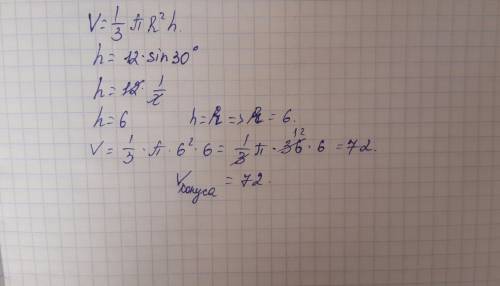 V = 1/3 π R² h.
h = 12 · sin 30°
h = 12 · 1/2
h = 6   h = R => R = 6.
V = 1/3 · π · 6² · 6 = 1/3 π · 36 12 · 6 = 72.
Vконуса = 72.